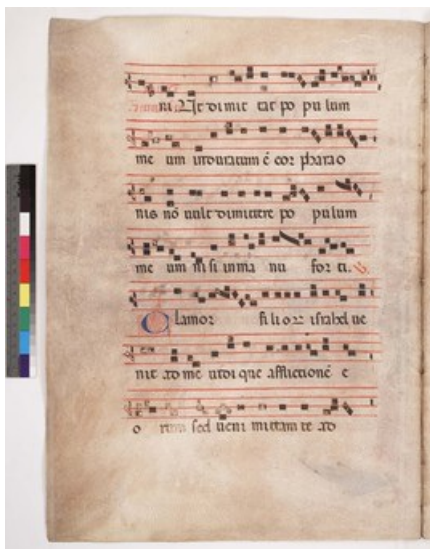 ni Ut dimit tat po pu lum
me um induratum ē cor pharao
nis nō uult dimittere po pulum
me um nisi in ma nu for ti. ℣.
Clamor filioꝝ israhel ue
nit ad me uidi que afflictionē e
o rum sed ueni mittam te ad